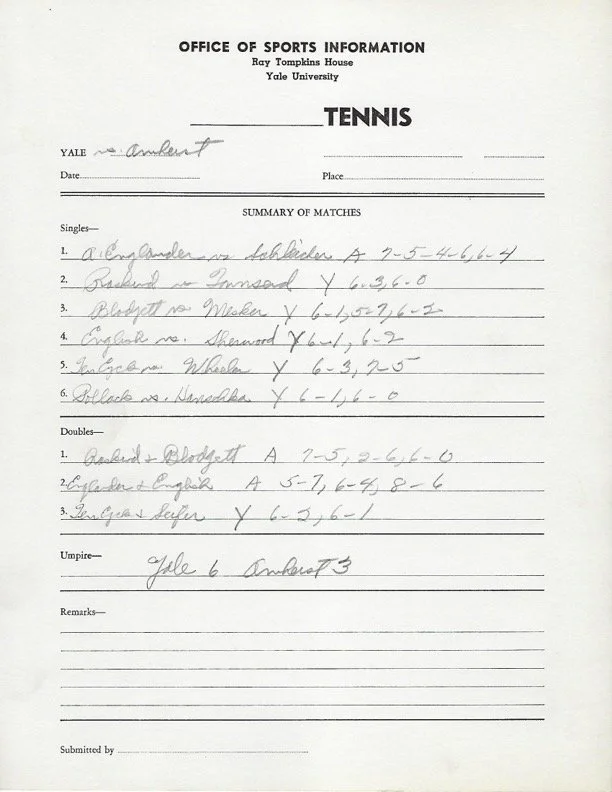 OFFICE OF SPORTS INFORMATION
Ray Tompkins House
Yale University
TENNIS
YALE vs. Amherst
Date Place
SUMMARY OF MATCHES
Singles—
1. A. Englander vs Schleicher A 7-5-4-6, 6-4
2. Raskind vs Townsend Y 6-3, 6-0
3. Blodgett vs. Mesker Y 6-1, 5-7, 6-2
4. English vs. Sherwood Y 6-1, 6-2
5. Ten Eyck vs. Wheeler Y 6-3, 7-5
6. Pollack vs. Y 6-1, 6-0
Doubles—
1. Raskind & Blodgett A 7-5, 2-6, 6-0
2. Englander & English A 5-7, 6-4, 8-6
3. Ten Eyck & Seifer Y 6-2, 6-1
Umpire—
Yale 6 Amherst 3
Remarks—
Submitted by